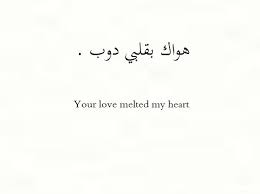 هواك بقلبي دوب .
Your love melted my heart